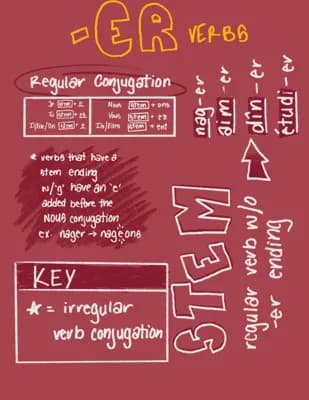 -ER VERBS
Regular Conjugation
Je stem + e
Tu stem + es
Il/Elle/On stem + e
Nous stem + ons
Vous stem + ez
Ils/Elles stem + ent
nag-er
aim-er
dîn-er
étudi-er
* verbs that have a
stem ending
w/'g' have an 'e'
added before the
NOUS conjugation
ex. nager → nageons
STEM
regular verb w/o
-er ending
KEY
* = irregular
verb conjugation